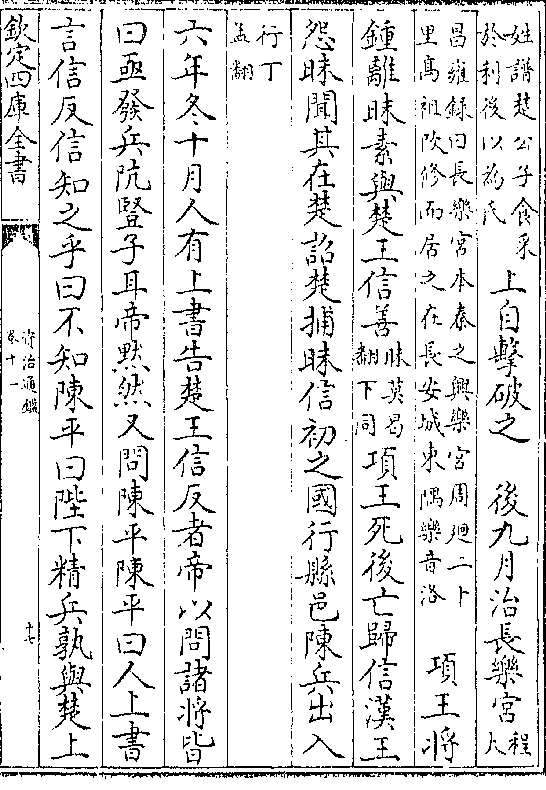 姓譜楚公子食采
於利後以為氏
上自擊破之　後九月治長樂宮
程大
昌雍録曰長樂宮本秦之興樂宮周廻二十
里髙祖改修而居之在長安城東隅樂音洛
項王將
鍾離昧素與楚王信善
昧莫曷
翻下同
項王死後亡歸信漢王
怨昧聞其在楚詔楚捕昧信初之國行縣邑陳兵出入
行下
孟翻
六年冬十月人有上書告楚王信反者帝以問諸將皆
曰亟發兵阬豎子耳帝黙然又問陳平陳平曰人上書
言信反信知之乎曰不知陳平曰陛下精兵孰與楚上
欽定四庫全書
資治通鑑
卷十一
十七